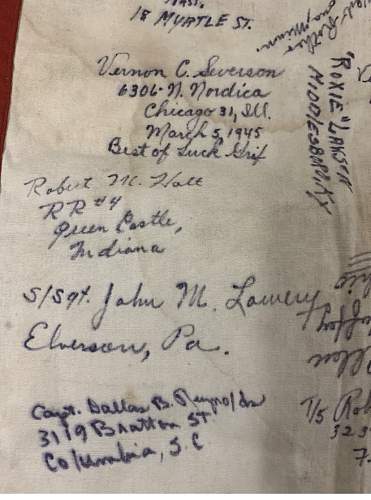 18 MYRTLE ST.
Vernon C. Severson
6306-N. Nordica
Chicago 31, Ill.
March 5, 1945
Best of Luck Grif
Robert M. Hatt
RR #4
Green Castle,
Indiana
S/Sgt. John M. Lowery
Elverson, Pa.
Capt. Dallas B. Reynolds
3119 Bratton ST
Columbia, S.C
"ROXIE" LAWSON
MIDDLESBORO, KY
T/5 Rob
323
7-